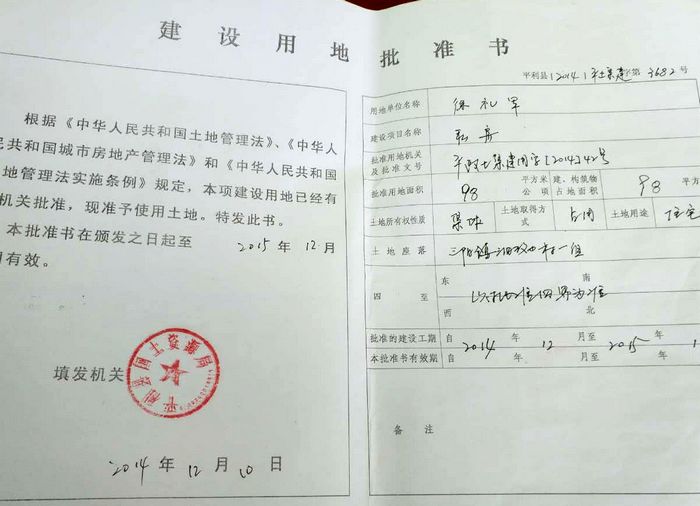 建设用地批准书
根据《中华人民共和国土地管理法》、《中华人
民共和国城市房地产管理法》和《中华人民共和国
地管理法实施条例》规定，本项建设用地已经有
机关批准，现准予使用土地。特发此书。
本批准书在颁发之日起至 2015 年 12 月
有效。
填发机关
平利县国土资源局
2014 年 12 月 10 日
平利县（2014）平土集建字第 3682 号
用地单位名称 徐礼军
建设项目名称 私房
批准用地机关及批准文号 平政土集建用字[2014]42号
批准用地面积 98 平方米 公顷 建、构筑物占地面积 98 平方
土地所有权性质 集体 土地取得方式 占用 土地用途 住宅
土地座落 三阳镇 村一组
四至 东 南 西 北 以 四界为准
批准的建设工期 自 2014 年 12 月至 2015 年 1
本批准书有效期 自 年 月至 年
备注